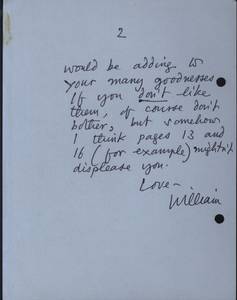 2
would be adding to
your many goodnesses
If you don't like
them, of course don't
bother, but somehow
I think pages 13 and
16 (for example) mightn't
displease you.
Love –
William